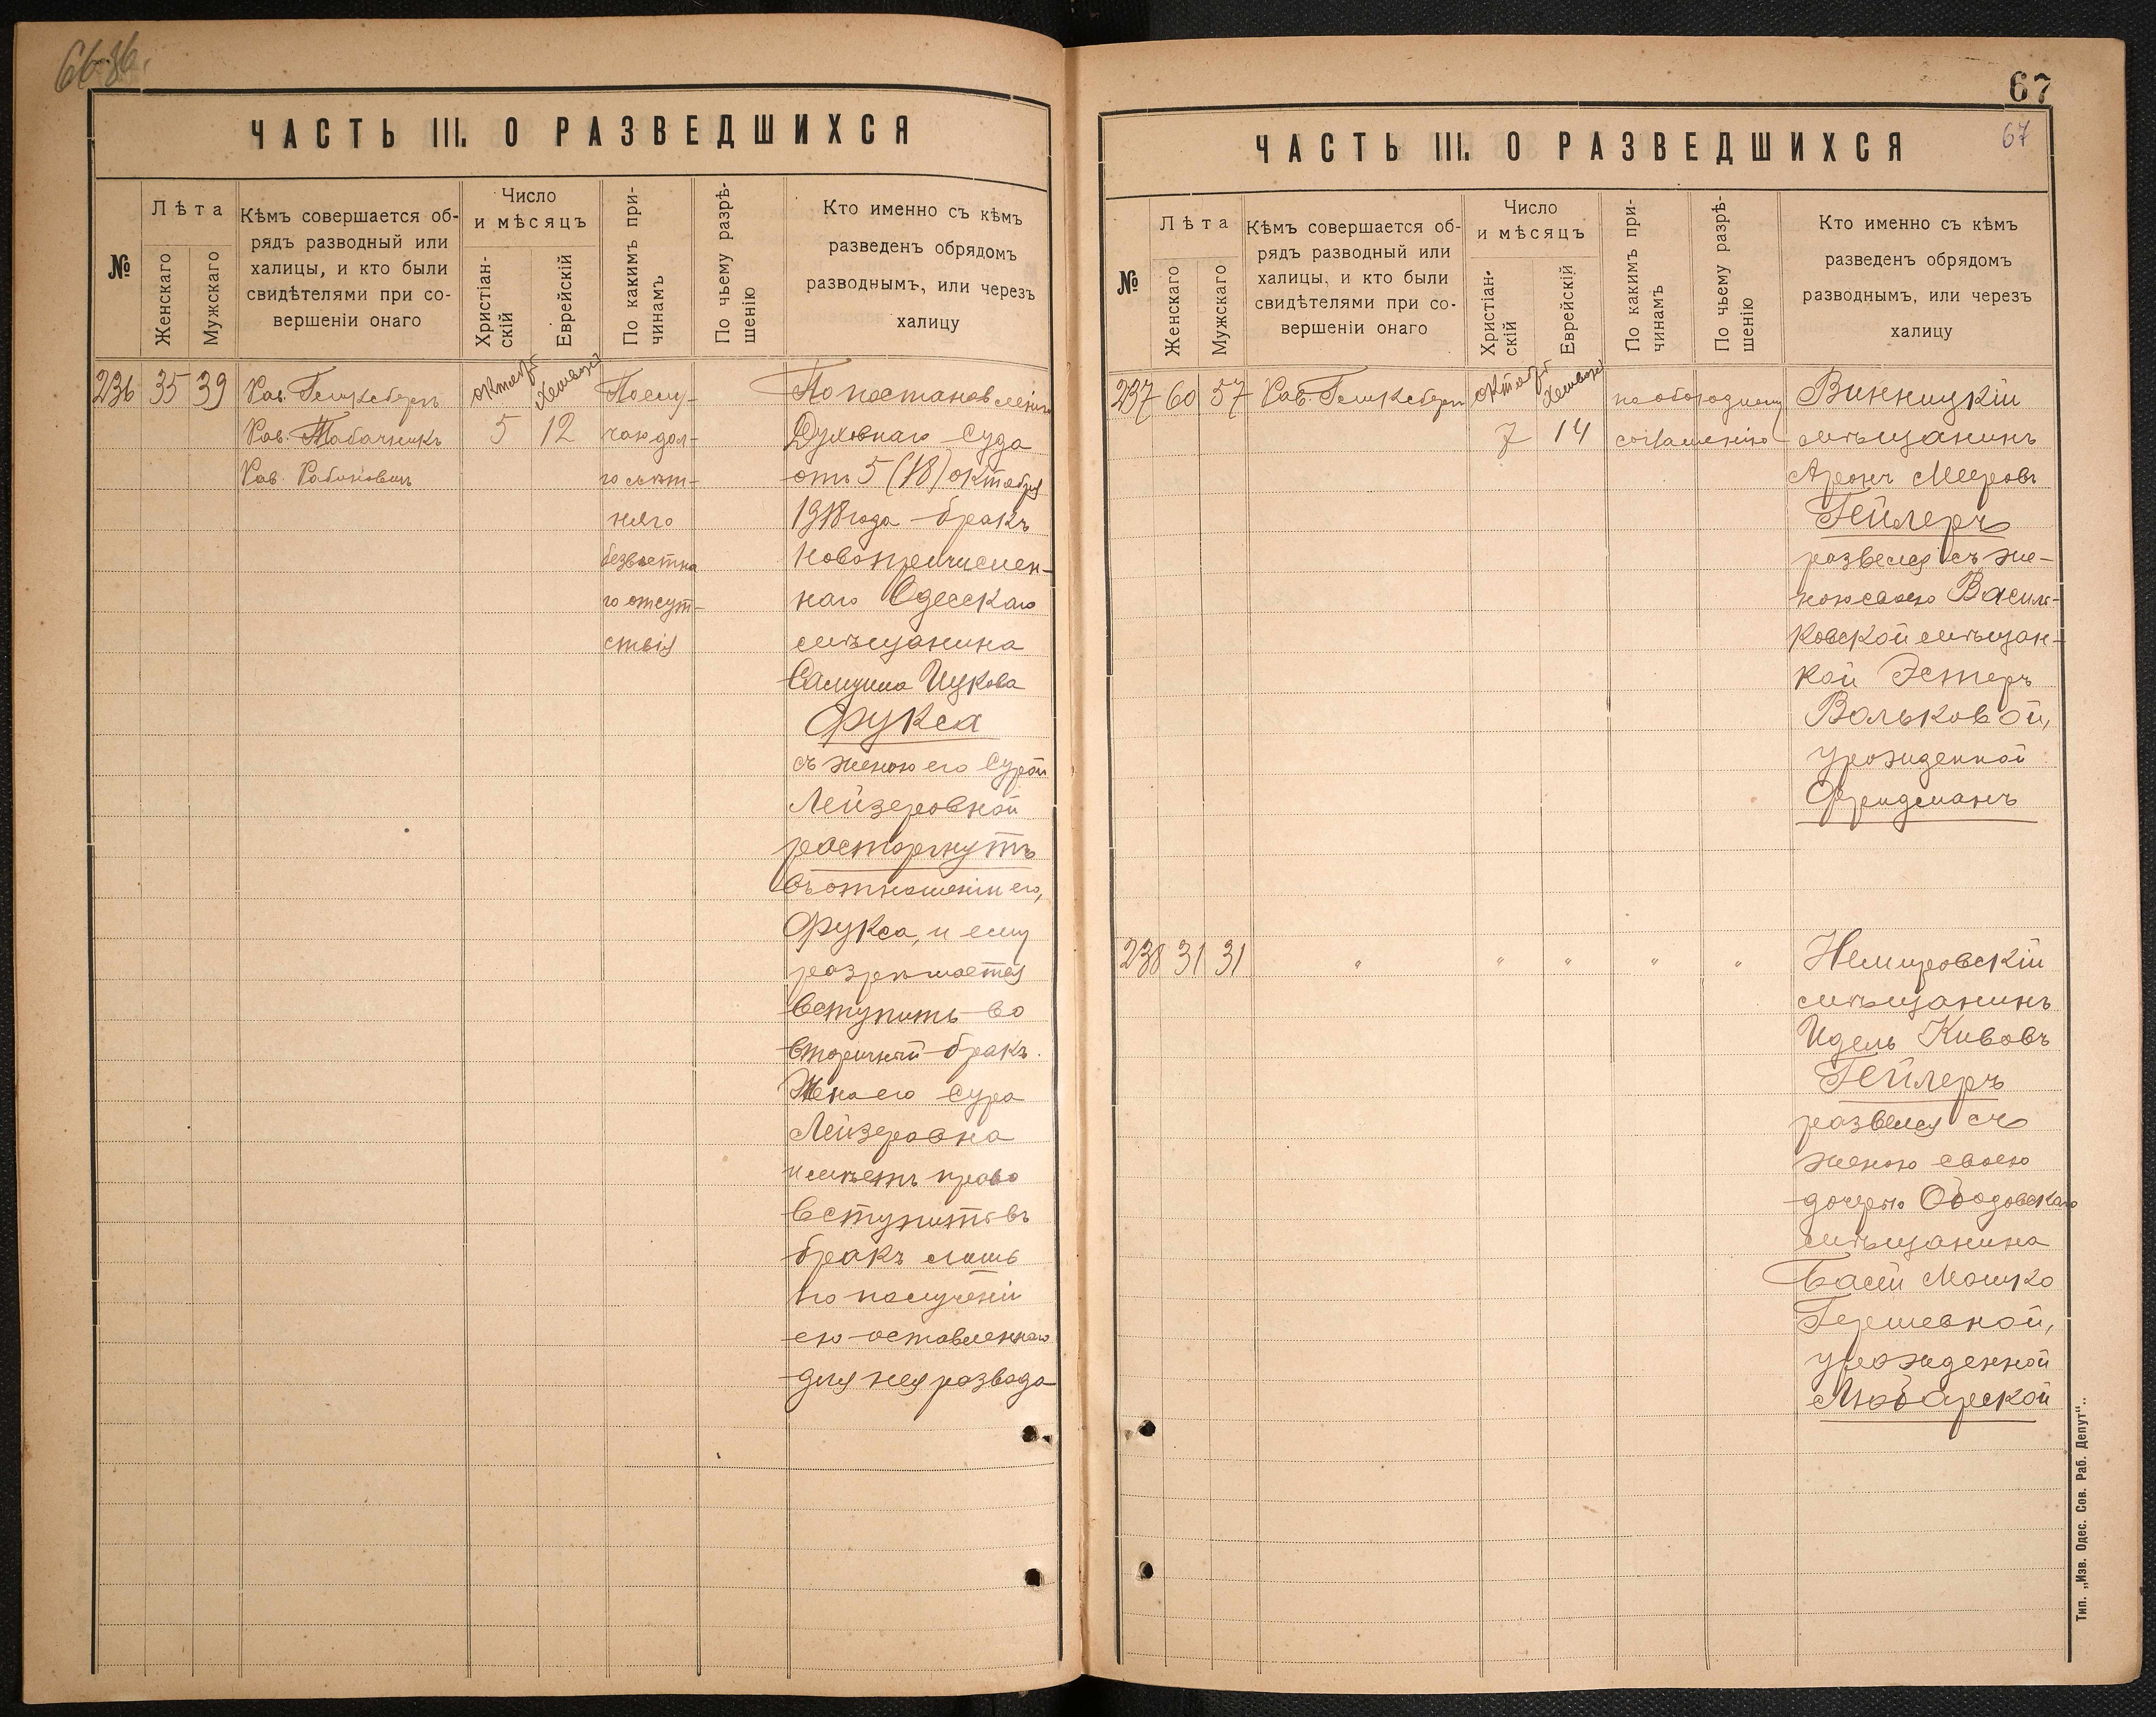 ЧАСТЬ III. О РАЗВЕДШИХСЯ
№
Лѣта
Женскаго
Мужскаго
Кѣмъ совершается об-
рядъ разводный или
халицы, и кто были
свидѣтелями при со-
вершеніи онаго
Число
и мѣсяцъ
Христіан-
скій
Еврейскій
По какимъ при-
чинамъ
По чьему разрѣ-
шенію
Кто именно съ кѣмъ
разведенъ обрядомъ
разводнымъ, или черезъ
халицу
236 35 39
Рав.
Рав. Табачникъ
Рав. Рабиновичъ
октябр
5
Хешвонъ
12
По слу-
чаю дол-
голѣт-
няго
безвѣстна
го отсут-
ствія
По постановленію
Духовнаго Суда
отъ 5 (18) октября
1918 года бракъ
новопричислен-
наго Одесскаго
мѣщанина
Самуила Ицкова
Фукса
съ женою его Сурой
Лейзеровной
расторгнутъ
въ отношеніи его,
Фукса, и ему
разрѣшается
вступить во
вторичный бракъ.
Жена его Сура
Лейзеровна
имѣетъ право
вступить въ
бракъ лишь
по полученіи
ею оставленнаго
для нея развода
67
ЧАСТЬ III. О РАЗВЕДШИХСЯ
67
№
Лѣта
Женскаго
Мужскаго
Кѣмъ совершается об-
рядъ разводный или
халицы, и кто были
свидѣтелями при со-
вершеніи онаго
Число
и мѣсяцъ
Христіан-
скій
Еврейскій
По какимъ при-
чинамъ
По чьему разрѣ-
шенію
Кто именно съ кѣмъ
разведенъ обрядомъ
разводнымъ, или черезъ
халицу
237 60 57
Рав.
октябр
7
Хешвон
14
по обоюдному
соглашенію
Винницкій
мѣщанинъ
Аронъ Мееровъ
Гейлеръ
развелся съ же-
ною своею Василь-
ковской мѣщан-
кой Эстеръ
Вольковой,
урожденной
Фридманъ
238 31 31 " " " " "
Немировскій
мѣщанинъ
Идель Кивовъ
Гейлеръ
развелся съ
женою своею
дочерью Ободовскаго
мѣщанина
Басей Мошко
Гершевной,
урожденной
Любарской
Тип. „Изв. Одес. Сов. Раб. Депут“.